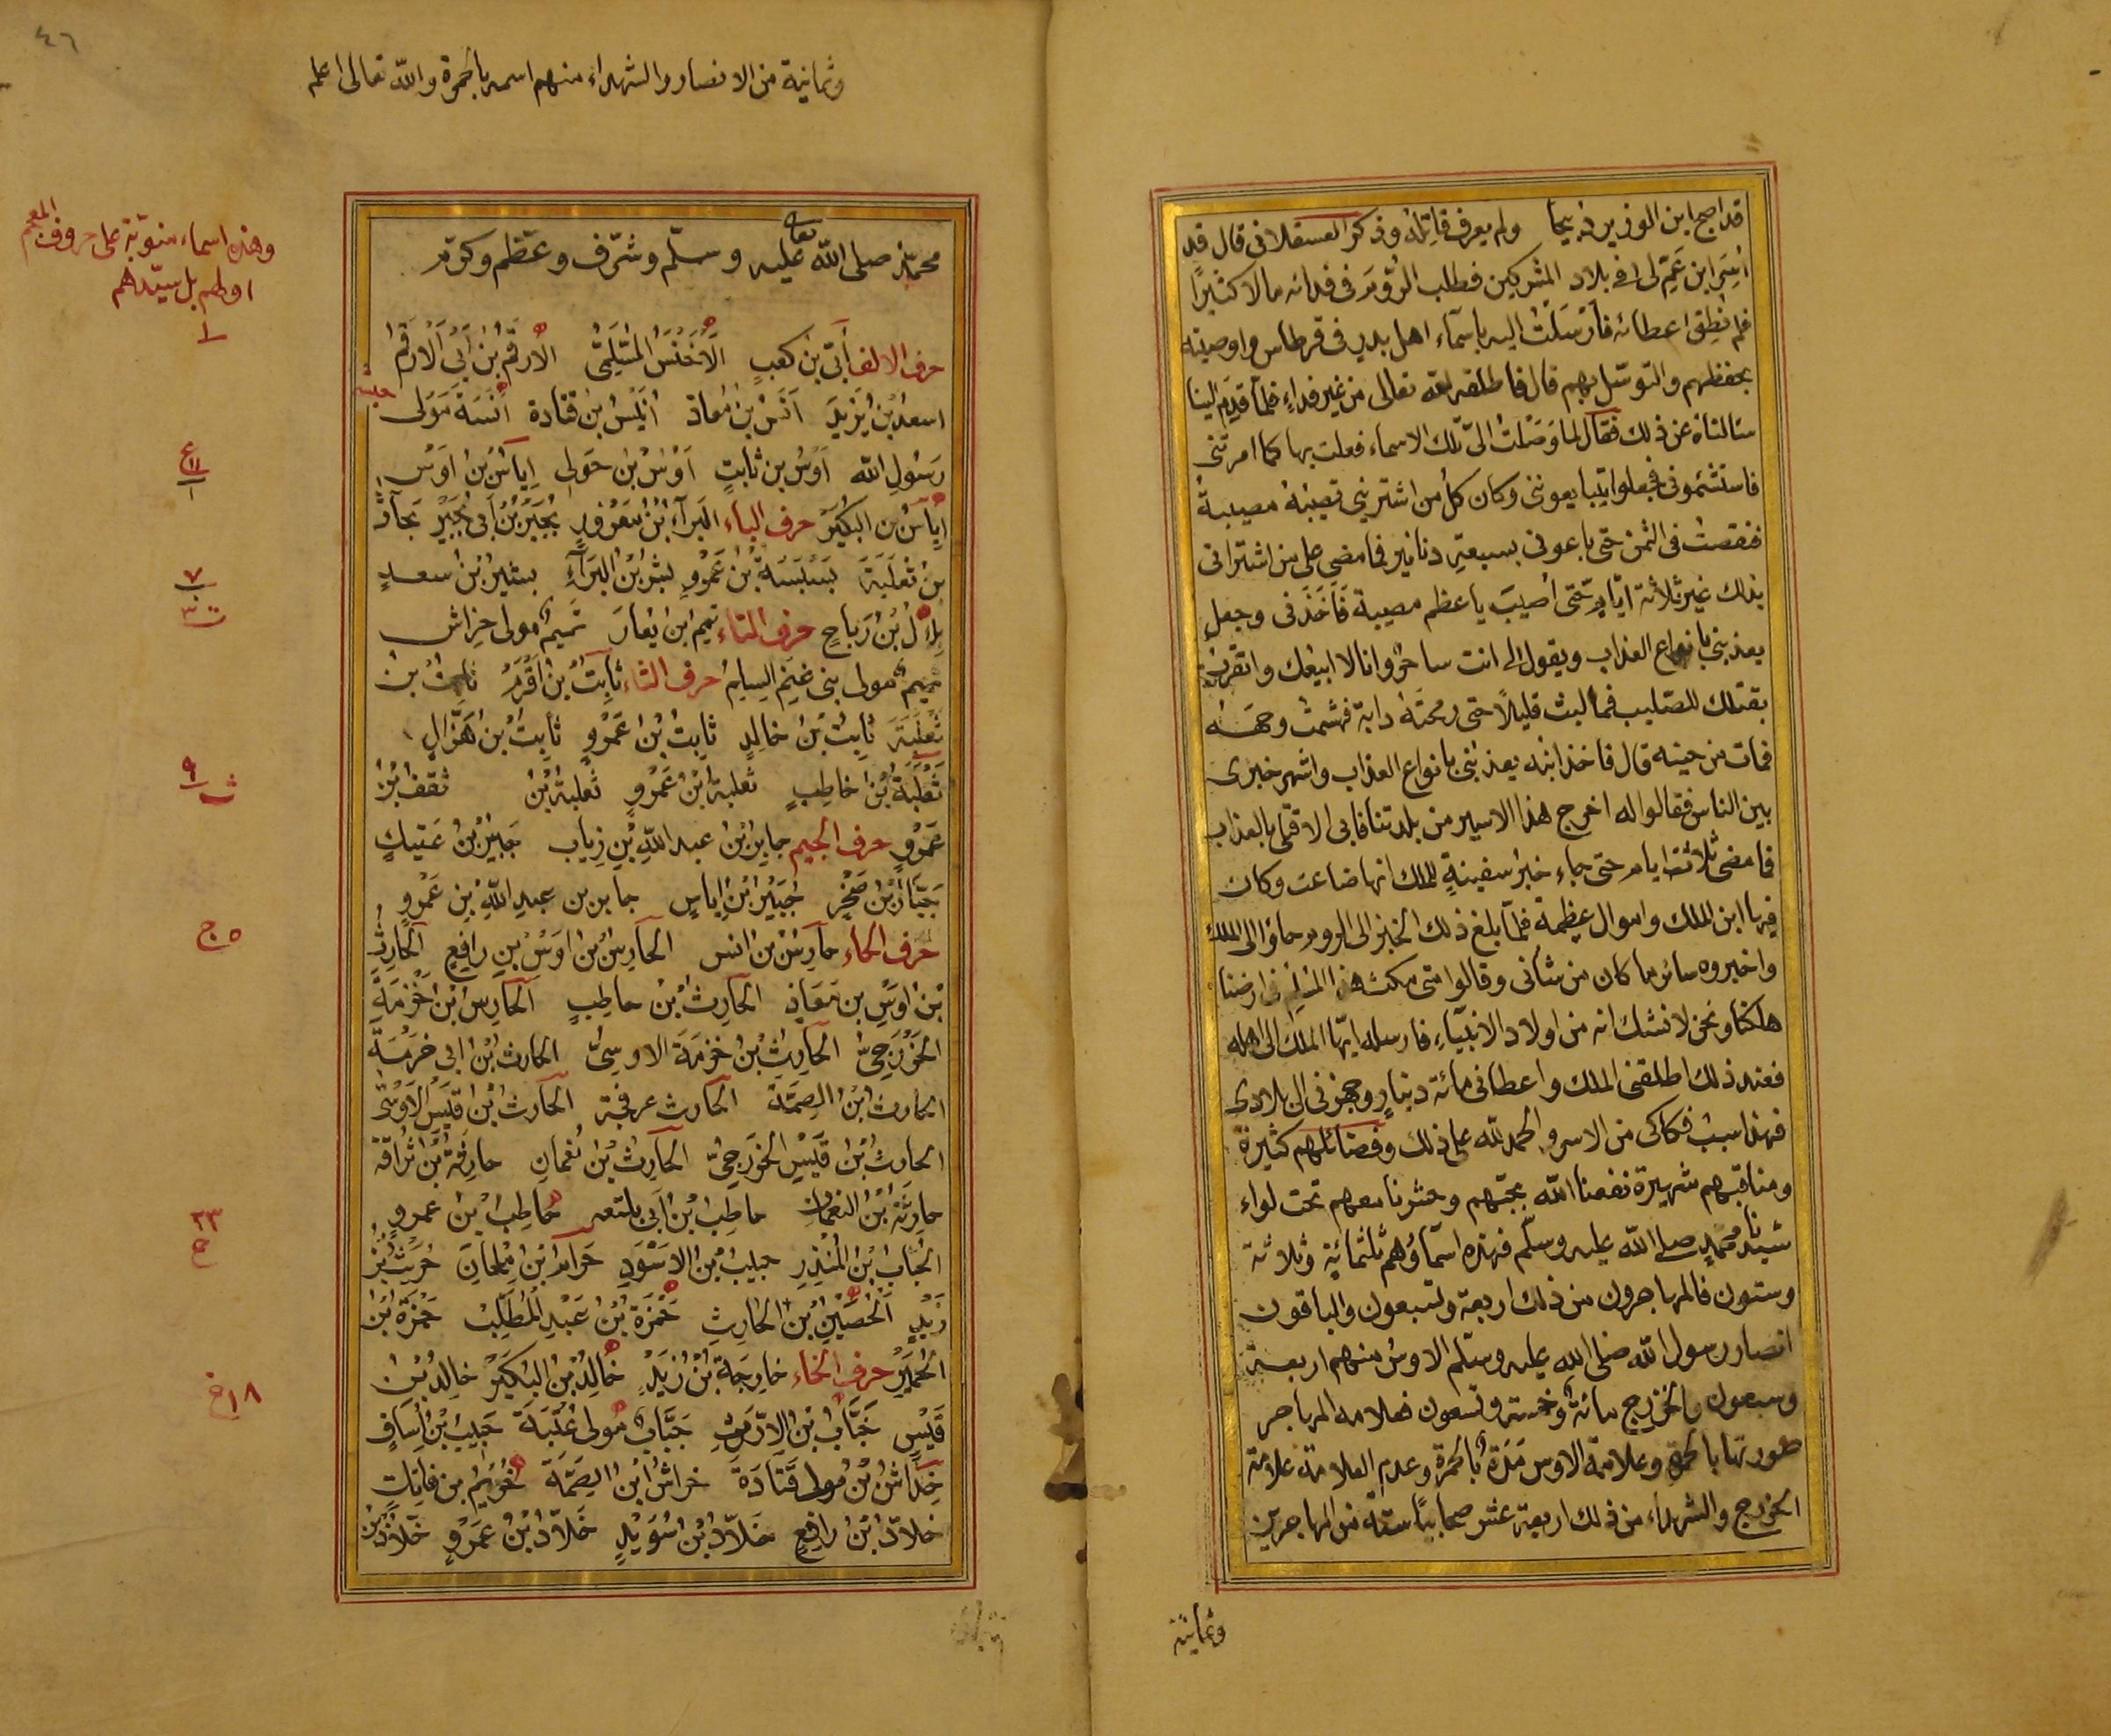 قد اصبح ابن الوزير ذبيحا ولم يعرف قاتله وذكر العسقلانى قال قد
أُسِرَ ابن عَمّ لى فى بلاد المشركين فطلب الرُّومُ فى فدائه مالا كثيرًا
فلم نُطِق اعطائه فأرْسَلْتُ اليه باسمآء اهل بدرٍ فى قرطاس واوصيته
بحفظهم والتوسّل بهم قال فاطلقه الله تعالى من غير فداءٍ فلمّا قدِمَ الينا
سئالناه عن ذلك فقال لما وَصَلْتُ الىّ تلك الاسماء فعلت بها كما امرتنى
فاستشئمونى فجعلوا يتبايعوننى وكان كلُّ من اشترينى تصيبُهُ مصيبةٌ
فنقصتُ فى الثمن حتى باعونى بسبعةِ دنانير فما مضى على من اشترانى
بذلك غير ثلاثة ايّام حتّى أُصيبَ باعظم مصيبة فَاَخَذَنى وجعل
يعذبنى بانواع العذاب ويقول لى انت ساحر وانا لا ابيعُك واتقرّب
بقتلك للصليب فما لبث قليلًا حتى رمحَتهُ دابة فهشمت وجهَـه
فمات من حينه قال فاخذ ابنُه يعذبنى بانواع العذاب واشهر خبرى
بين الناس فقالوا له اخرج هذا الاسير من بلدتنا فابى الا قتلى بالعذاب
فما مضى ثلاثة ايام حتى جاء خبرُ سفينةٍ للملك انها ضاعت وكان
فيها ابن الملك واموال عظيمة فلمّا بلغ ذلك الخبر الى الروم جاؤا الى الملك
واخبروه سائر ما كان من شأنى وقالوا متى مكث هذا المسلم فى ارضنا
هلكنا ونحن لا نشك انه من اولاد الانبيَاءِ فارسله ايّها الملك الى اهله
فعند ذلك اطلقنى الملك واعطانى مائة دينارٍ وجهزنى الى بلادى
فهذا سببُ فكاكى من الاسر والحمد لله على ذلك وفضائلهم كثيرة
ومناقبهم شهيرة نفعنا اللّه بمحبّتهم وحشرنا معهم تحت لواء
سَيّدنا محمّدٍ صلى اللّه عليه وسلّم فهذه اسمآؤهم ثلثمائة وثلاثة
وستون فالمهاجرون من ذلك اربعة وتسعون والباقون
انصار رسول اللّه صلى اللّه عليه وسلّم الاوسُ منهم اربعـة
وسبعون والخزرج مائة وخمسة وتسعون فعلامة المهاجر
صورتها بالحمرة وعلامة الاوس مَدّةٌ بالحمرة وعدم العلامة علامة
الخزرج والشهداء من ذلك اربعة عشر صحابيًا ستة من المهاجرين
وثمانية
٤٦
وثمانية من الانصار والشهداء منهم اسمه بالحمرة واللّه تعالى اعلم
محمّدٍ صلى اللّه تعالى عليه وسلّم وشرّف وعظّم وكرّم
حرف الالف أُبَىّ بن كعبٍ الأَخْنَسُ السُّلَمِىّ الأرقَمُ بْنُ أَبِى الأرقَمْ
اسعدُ بْنُ يَزِيدَ اَنَسُ بْنُ مُعاذ اُنَيْسُ بْنُ قتَادة اَنَسَة مَولى
رَسُولِ اللّه اَوْسُ بن ثابتٍ اَوْسُ بْنُ خَولى اِيَاسُ بْنُ اَوْسٍ
اِيَاسُ بْن البُكَيْرْ حرف الباء البَرآءُ بْنُ مَعْرُورٍ بُجَيْرُ بْنُ اَبِى بُجَيْرٍ بَحَّاثُ
بنُ ثَعْلَبَةَ بَسْبَسَةُ بْنُ عَمْروٍ بِشْرُ بْنُ البَرَآءِ بشيرُ بْنُ سعـدٍ
بِلالُ بْنُ رَبَاحٍ حرف التاء تميم ابن يُعَارَ تميمٌ مولى خِراشٍ
تميمٌ مولى بنى غنمِ السِلِمْ حرف الثاء ثابتُ بْنُ اَقْرَمْ ثابتُ بن
ثَعْلَبَةَ ثابتُ بْنُ خالِدٍ ثابِتُ بْنُ عَمْروٍ ثابِتُ بْنُ هَزَّالٍ
ثَعْلَبَةُ بْنُ حاطِبٍ ثعلبة بْنُ عَمْروٍ ثعلبةُ بْنُ ثقفُ بْنُ
عَمْروٍ حرف الجيم جابِرُ بْنُ عبد اللّٰهِ بْنِ رِيَابٍ جَبْرُ بْنُ عَتيكٍ
جَبَّارُ بْنُ صَخْرٍ جُبَيْرُ بْنُ اِيَاسٍ جابر بن عبدِ اللّٰهِ بْنِ عَمْروٍ
حرف الحاء حارثُ بْن انس الحارثُ بْن اوسِ بْنِ رافِعٍ الحارِثُ
بْنُ اوسِ بن مَعَاذٍ الحارِثُ بْنُ حاطِبٍ الحارثُ بْنُ خَزْمَةَ
الخَزْرَجِىُّ الحارِثُ بْنُ خزمَةَ الاوسِىُّ الحارثُ بْنُ ابى خزمَةَ
الحارث ابْنُ الصِمَّة الحارث عرفجة الحارث ابْنُ قَيْس الاَوْسِىُّ
الحارث ابْنُ قَيْسِ الخَزْرَجِىُّ الحارِثُ بْنُ نُعْمان حارِثَةُ بْنُ سُرَاقَةَ
حارِثَةُ بْنُ النعمان حاطِبُ بْنُ اَبِى بلتعه حَاطِبُ بْنُ عمروٍ
الحُبابُ بْنُ المُنْذِرِ حبيبُ بْنُ الاسْوَدِ حَرامُ بْنُ مِلْحانَ حُرَيْثُ بْنُ
زَيْدٍ الْحُصَيْنُ بْنُ الحَارِثِ حَمْزَةُ بْنُ عَبْدِ المُطَّلِبْ حَمْزَةُ بْنُ
الحُمَيِّرْ حرف الخاء خارِجَةُ بْنُ زَيْدٍ خَالِدُ بْنُ البُكَيْرْ خالِدُ بْنُ
قَيْسٍ خَبَّابُ بْنُ الاَرَتّ خَبَّابٌ مَولى عُتْبَةَ خبيبُ بْنُ اِسَافٍ
خِدَاشُ بْنُ مولى قَتَادَة خراشُ ابْنُ الصِمَّة خُرَيْمُ بن فاتِكٍ
خلّادُ بْنُ رافعٍ خَلّادُ بْنُ سُوَيْدٍ خَلّادُ بْنُ عَمْروٍ خَلّادُ بْنُ
وهذه اسماء منوّبة على حروف المعجم
اولهم بل سيّدهم
١
١١
٧
ب
٣
ت
٩
ث
٥ ج
٢٣
ح
١٨ خ